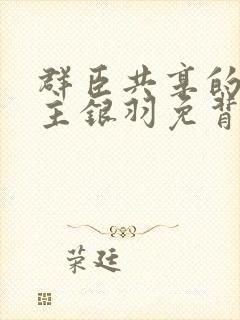 群臣共享的
主银羽免背
荣廷